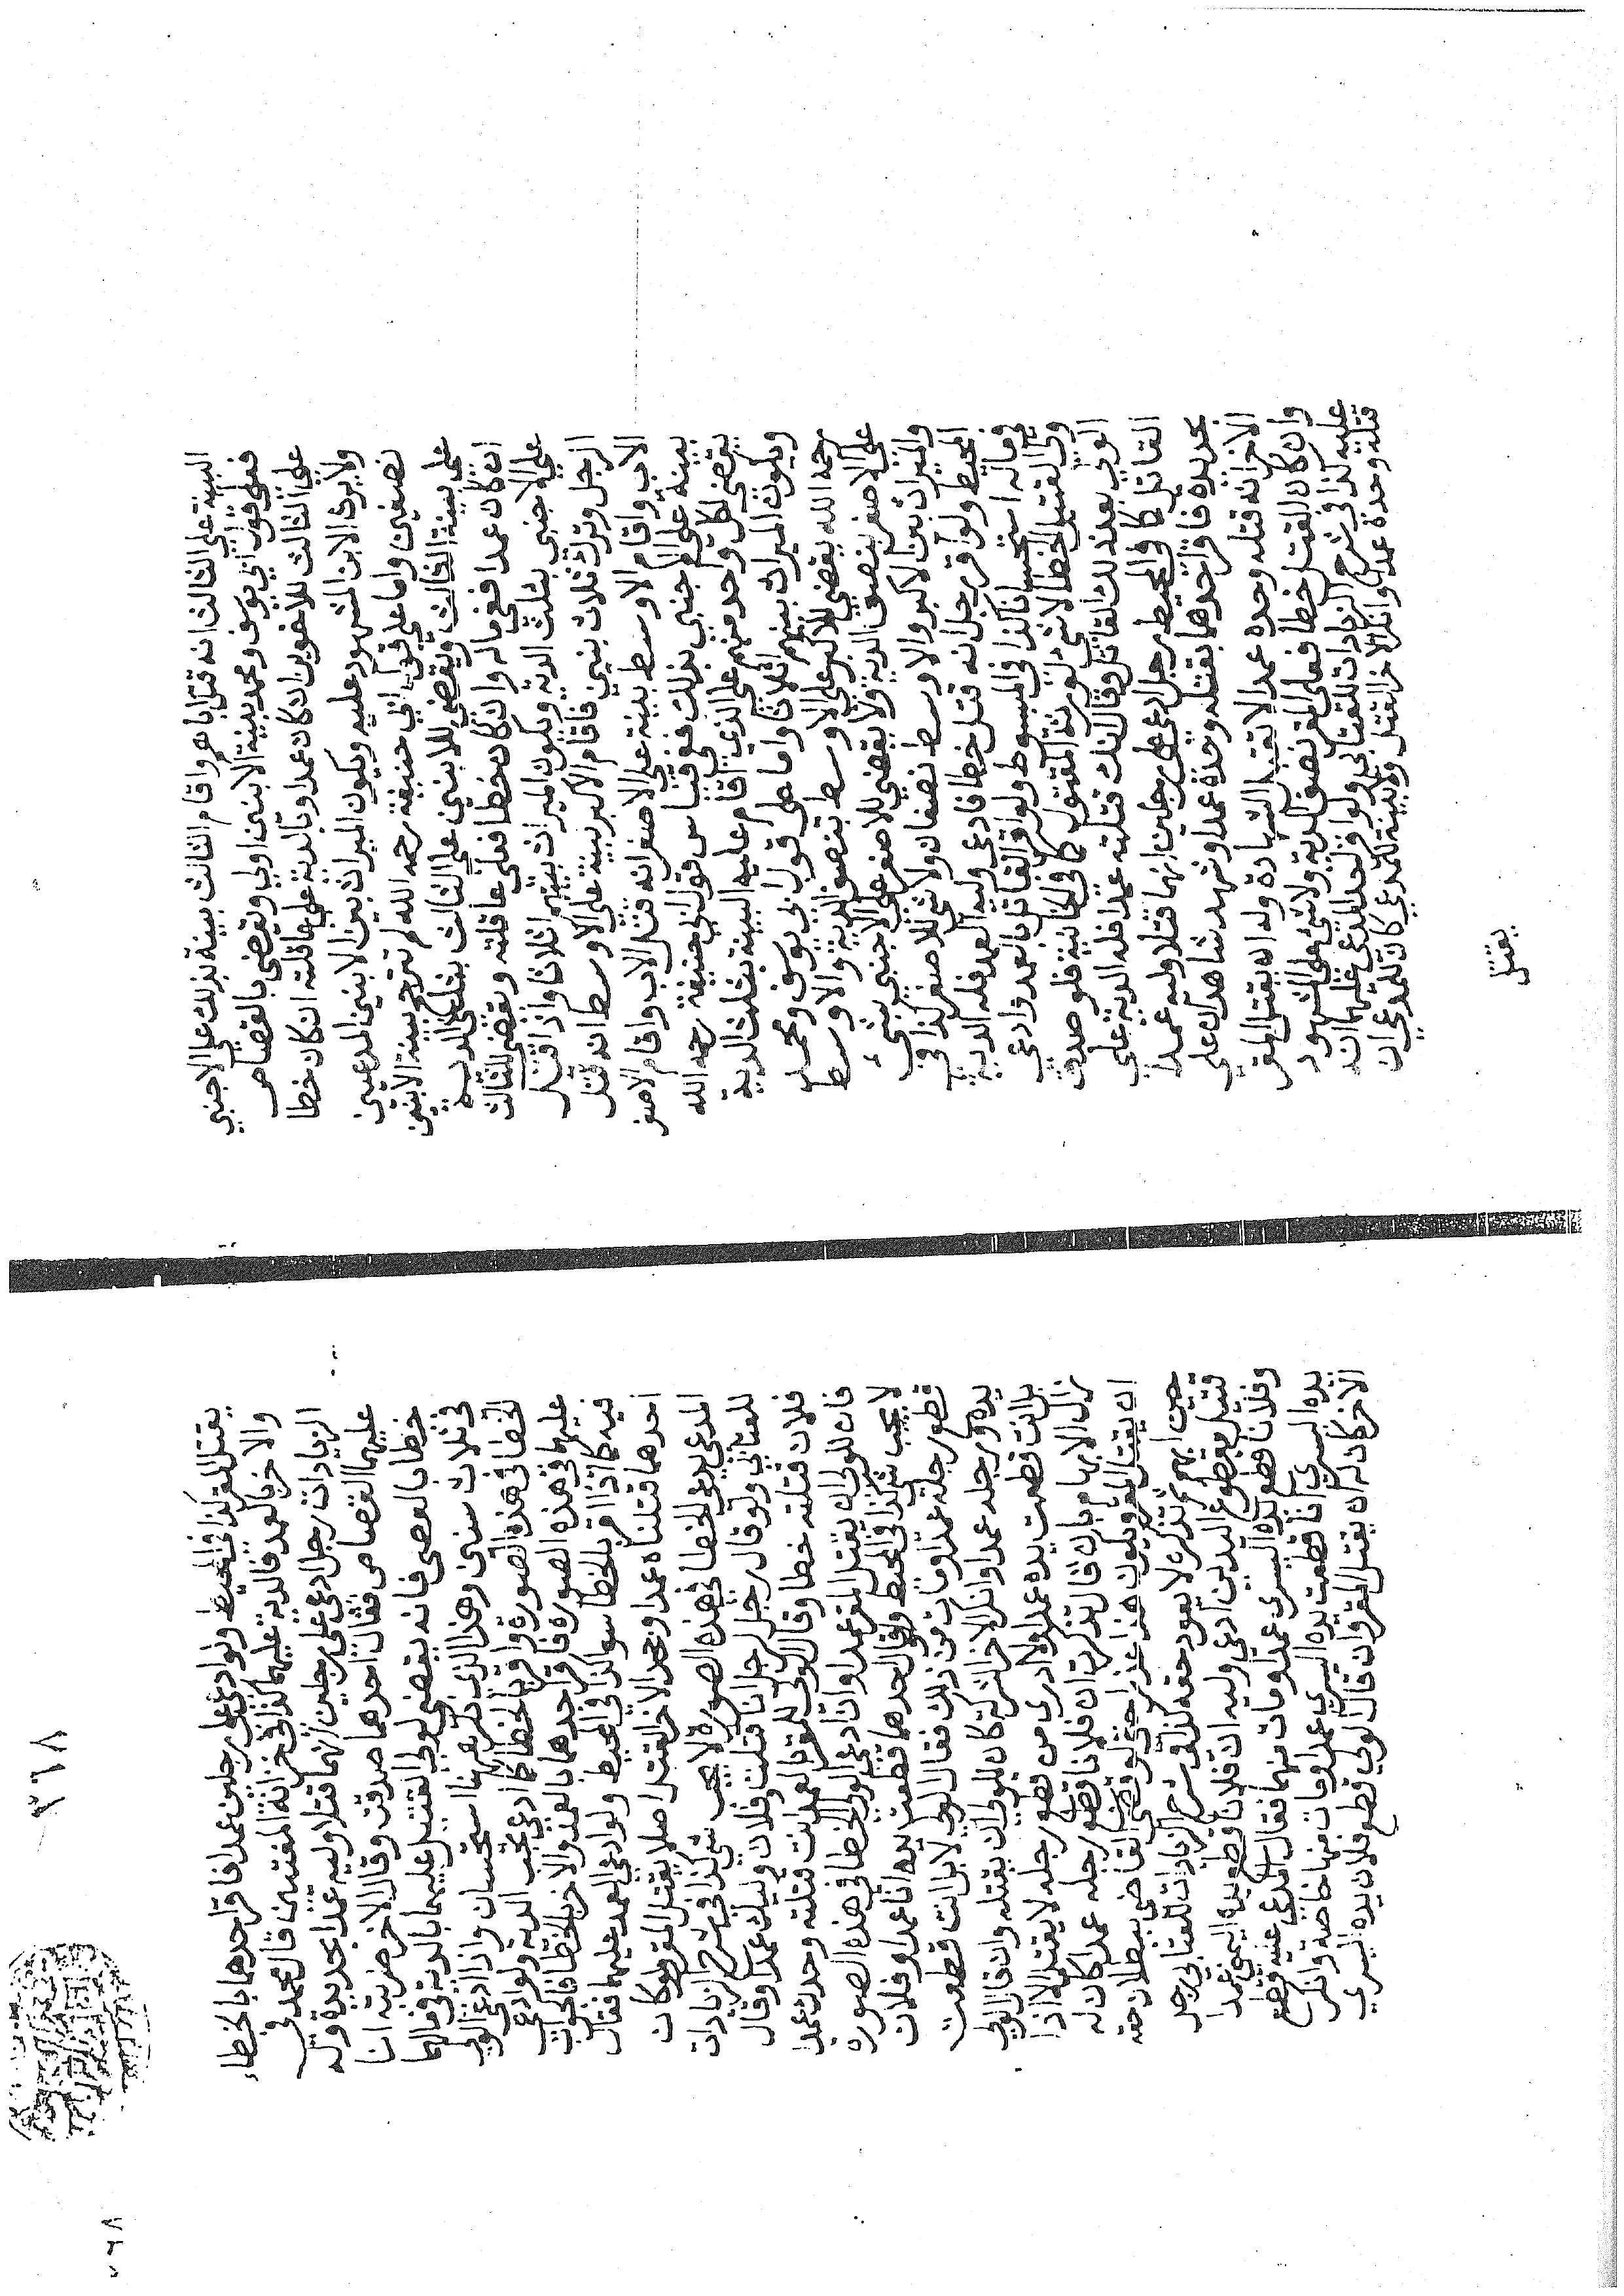 البينة على الثالث انه قتل اباهم واقام الثالث بينة بذلك على الاجنبي
ففي قول ابي يوسف ومحمد بينة الابنين اولى ويقضى بالقصاص
على الثالث للاخوين ان كان عمدا وبالدية على عاقلته ان كان خطا
ولا يرث الابن المشهود عليه ويكون الميراث بين الابنين المدعيين
نصفين واما على قول ابي حنيفة رحمه الله لم تترجح بينة الابنين
على بينة الثالث ويقضى للابنين على الثالث بثلثي الدية
ان كان عمدا ففي ماله وان كان خطا فعلى عاقلته ويقضي للثالث
على الاجنبي بثلث الدية ويكون الميراث بينهم اثلاثا واذا قتل
الرجل وترك ثلاث بنين فاقام الاكبر بينة على الاوسط انه قتل
الاب واقام الاوسط بينة على الاصغر انه قتل الاب واقام الاصغر
بينة على الاجنبي بذلك ففي قياس قول ابي حنيفة رحمه الله
يقضي لكل واحد منهم على الذي اقام عليه البينة بثلث الدية
ويكون الميراث بينهم اثلاثا واما على قول ابي يوسف ومحمد
رحمه الله يقضي للاكبر على الاوسط بنصف الدية والاوسط
على الاصغر بنصف الدية ولا يقضي للاصغر على الاجنبي بشيء
والميراث بين الاكبر والاوسط نصفان ولا شي للاصغر كذا في
المحيط ولو اقر رجل انه قتل خطا فادعى وليه العمد فله الدية
في ماله استحسانا كذا في المبسوط ولو اقر القاتل بالعمد وادعى
ولي القتيل الخطا لا شي لورثة المقتول كما في الخانية فلو صدق
الولي بعد ذلك القاتل وقال انك قتلته عمدا فله الدية على
القاتل كما في المحيط رجل ادعى على رجلين انهما قتلا وليه عمدا
بحديدة فاقر احدهما بقتله وحده عمدا وشهد شاهدان على
الاخر انه قتله وحده عمدا لا تقبل الشهادة وله ان يقتل المقر
وان كان القتل خطا فعلى المقر نصف الدية ولا شي على المشهود
عليه كذا في شرح الزيادات للعتابي ولو قال احد المدعى عليهما انه
قتله وحده عمدا وانكر الاخر القتل ولا بينة للمدعي كان للمدعي ان
يقتل
٣٦٨
يقتل المقر كذا في المحيط ولو ادعى على رجلين عمدا فاقر احدهما بالخطاء
والاخر بالعمد فالدية عليهما كذا في خزانة المفتيين قال محمد في
الزيادات رجل ادعى على رجلين انهما قتلا وليه عمدا بحديدة وله
عليهما القصاص فقال احدهما صدقت وقال الاخر ضربته انا
خطا بالعصى فانه يقضى لولي القتيل عليهما بالدية في مالهما
في ثلاث سنين وهذا الذي ذكر ههنا استحسان واذا ادعى الولي
الخطا في هذه الصورة واقر بالخطا كما ادعى تجب الدية ولو ادعى
عليهما في هذه الصورة فاقر احدهما بالعمد والاخر بالخطا فالجواب
فيه كما اذا اقر بالخطا سوا كذا في المحيط ولو ادعى العمد عليهما فقال
احدهما قتلناه عمدا وجحد الاخر القتل اصلا يقتل المقر ولو كان
المدعي يدعي الخطا في هذه الصورة لا يجب شي كذا في شرح الزيادات
للعتابي ولو قال رجل لرجل انا قتلت وفلان وليك عمدا وقال
فلان قتلته خطا وقال الولي للمقر بالعمد انت قتلته وحدك عمدا
فان للولي ان يقتل المقر عمدا وان ادعى الولي الخطا في هذه الصورة
لا يجب شي كذا في المحيط ولو قال احدهما قطعت يده انا عمدا وفلان
قطع رجله عمدا ومات من ذلك فقال الولي لا بل انت قطعت
يده ورجله عمدا وانكر الاخر الشركة كان للولي ان يقتله وان قال الولي
بل انت قطعت يده عمدا ولا ادري من قطع رجله لا يقتل الا اذا
زال الابهام بان قال تذكرت ان فلانا قطع رجله عمدا كان له
ان يقتل المقر ويكون هذا عذرا حتى لو قضى القاضي ببطلان حقه
حين ابهم ثم تذكر لا يعود حقه كذا في شرح الزيادات للعتابي رجل
قتيل مقطوع اليدين ادعى وليه ان فلانا قطع يده اليمنى عمدا
وفلانا قطع يده اليسرى عمدا ومات منهما فقال المدعى عليه قطع
يده اليسرى انا قطعت يده اليسرى عمدا ومات منها خاصة وانكر
الاخر كان له ان يقتل المقر وان قال الولي قطع فلان يده اليسرى
٣٦٨